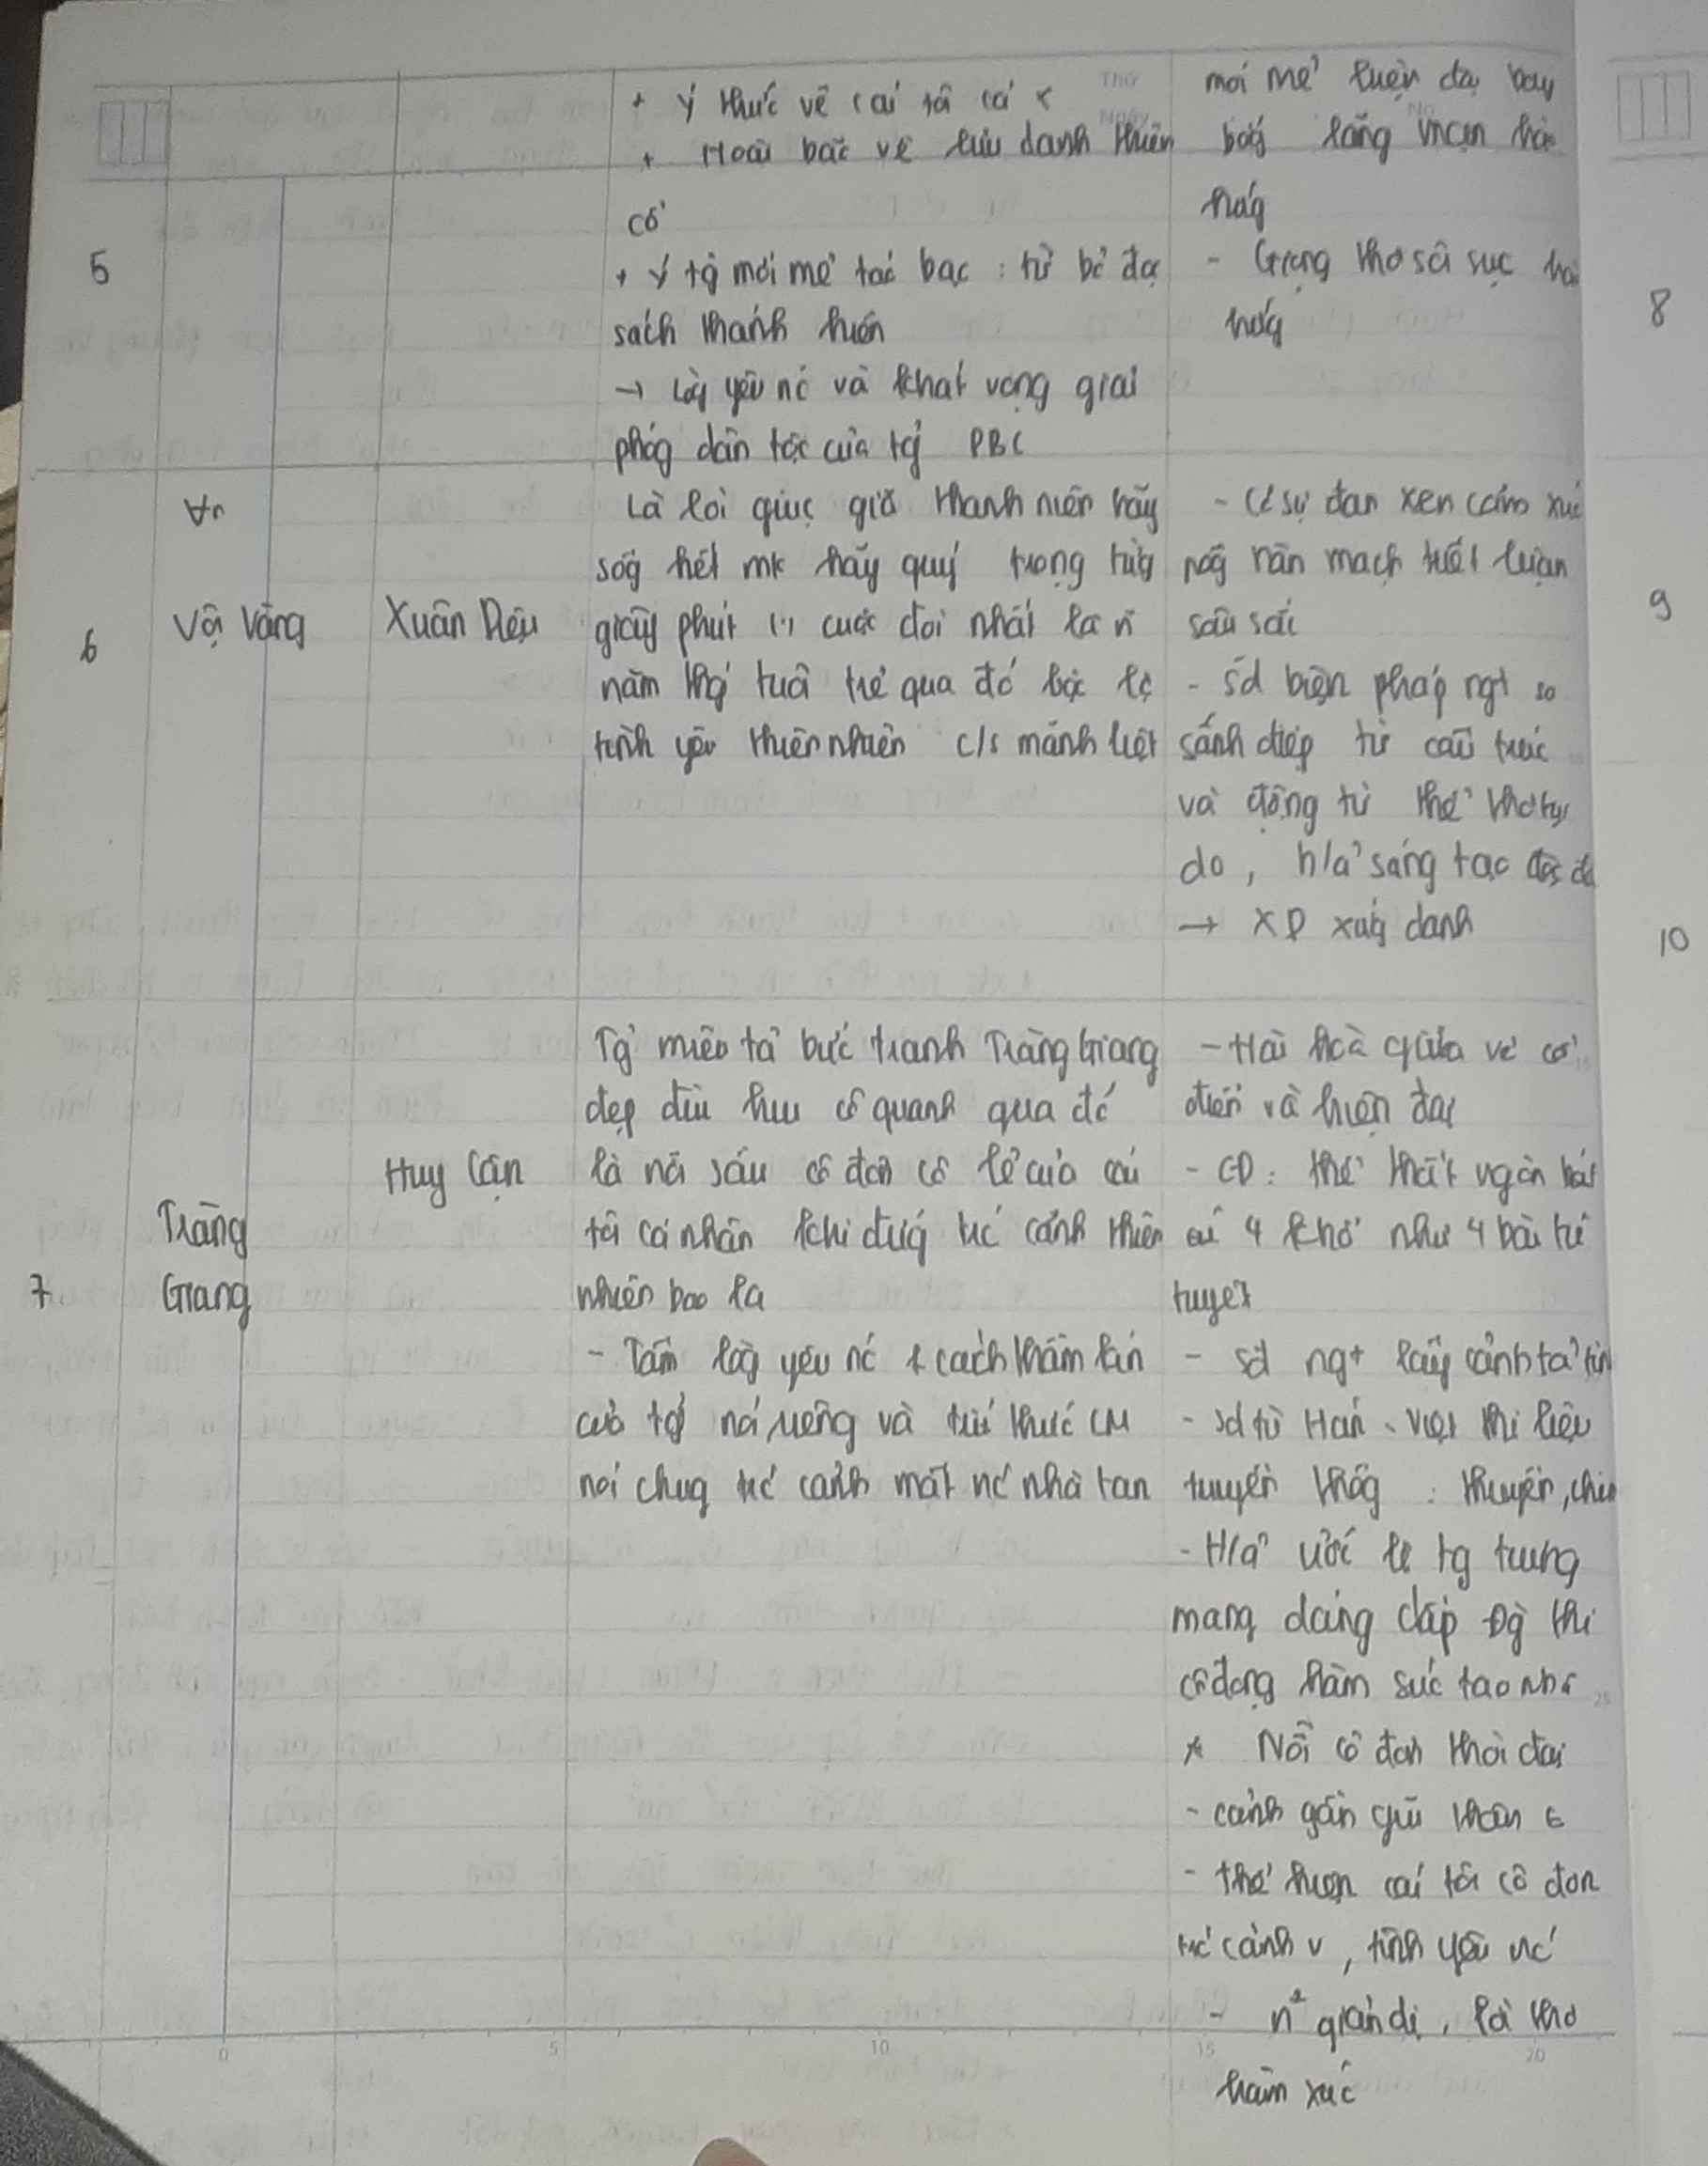 + ý thức về cái tôi cá x
+ Hoài bão về lưu danh thiên
cổ
+ ý tg mới mẻ táo bạo : từ bỏ đạo
sách thánh hiền
→ Lòg yêu nc và khát vọng giải
phóg dân tộc của tg PBC
mới mẻ hiện đại bay
bổg lãng mạn hào
hág
- Giọng thơ sôi sục hào
hág
5
6
Vội Vàng
Xuân Diệu
Là lời giục giã thanh niên hãy
sốg hết mk hãy quý trọng từg
giây phút cuộc đời nhất là n
năm thg tuổi trẻ qua đó bộc lộ
tình yêu thiên nhiên c/s mãnh liệt
- Có sự đan xen cảm xúc
nồg nàn mạch triết luận
sâu sắc
- Sd biện pháp ngt so
sánh điệp từ cấu trúc
và động từ thể thơ tự
do , h/ả sáng tạo độc đá
→ XD xứg danh
7
Tràng
Giang
Huy Cận
Tg miêu tả bức tranh Tràng Giang
đẹp đìu hiu cô quạnh qua đó
là nỗi sầu cô đơn cô lẻ của cái
tôi cá nhân khi đứg trc cảnh thiên
nhiên bao la
- Tấm lòg yêu nc 1 cách thầm kín
của tg nói riêng và trí thức CM
nói chug trc cảnh mất nc nhà tan
- Hài hoà giữa vẻ cổ
điển và hiện đại
- CĐ : thể thất ngôn bát
cú 4 khổ như 4 bài tứ
tuyệt
- sd ngt lấy cảnh tả tìn
- sd từ Hán - Việt thi liệu
truyền thốg : thuyền, chim
- H/ả ước lệ tg trưng
mang dáng dấp Đg thi
cô đọng hàm súc tao nhã
* Nỗi cô đơn thời đại
- cảnh gần gũi thân t
- thể hiện cái tôi cô đơn
trc cảnh v , tình yêu nc
- n² giản dị , lời thơ
hàm xúc
8
9
10